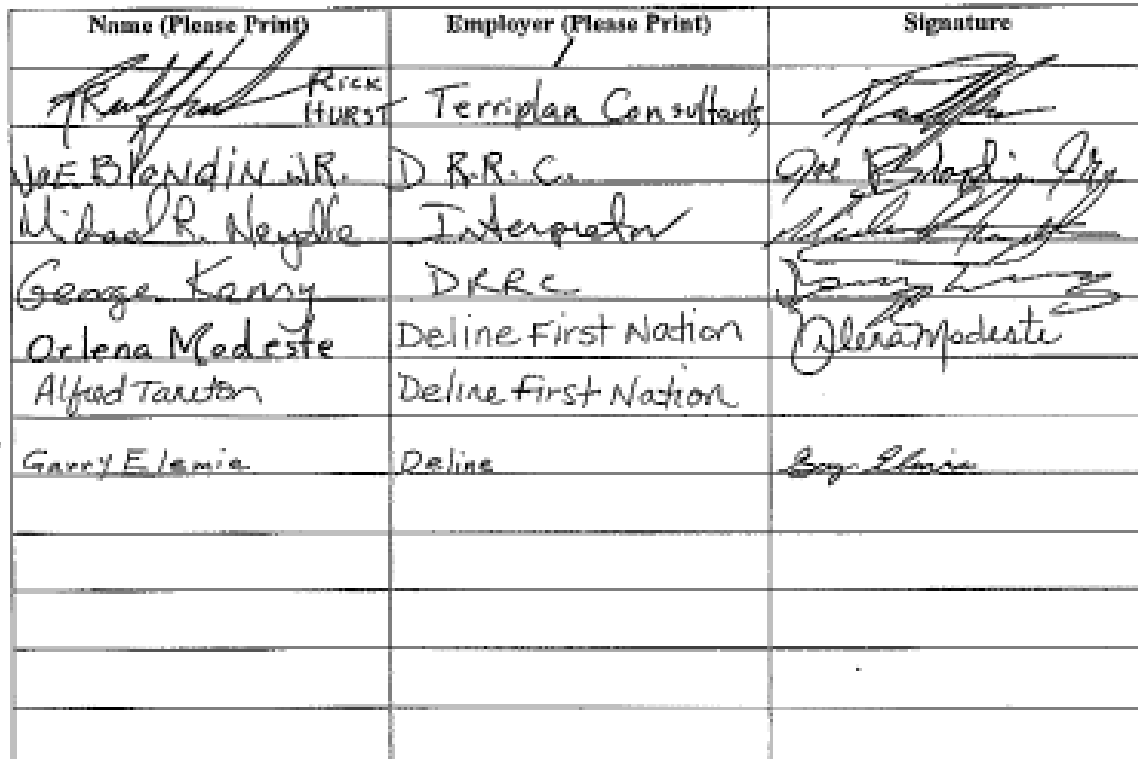 Name (Please Print) Employer (Please Print) Signature
Rick Hurst Terriplan Consultants
Joe Blondin Jr. D.R.R.C. Joe Blondin Jr.
Michael R. Neyelle Interpretor
George Kenny DRRC
Orlena Modeste Deline First Nation Orlena Modeste
Alfred Taneton Deline First Nation
Garry Elemie Deline Gary Elemie